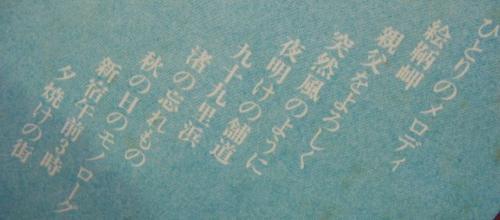 ひとりのメロディ
絵柄岬
親父をよろしく
突然風のように
夜明けの舗道
九十九里浜
渚の忘れもの
秋の日のモノローグ
新宿午前3時
夕焼けの街